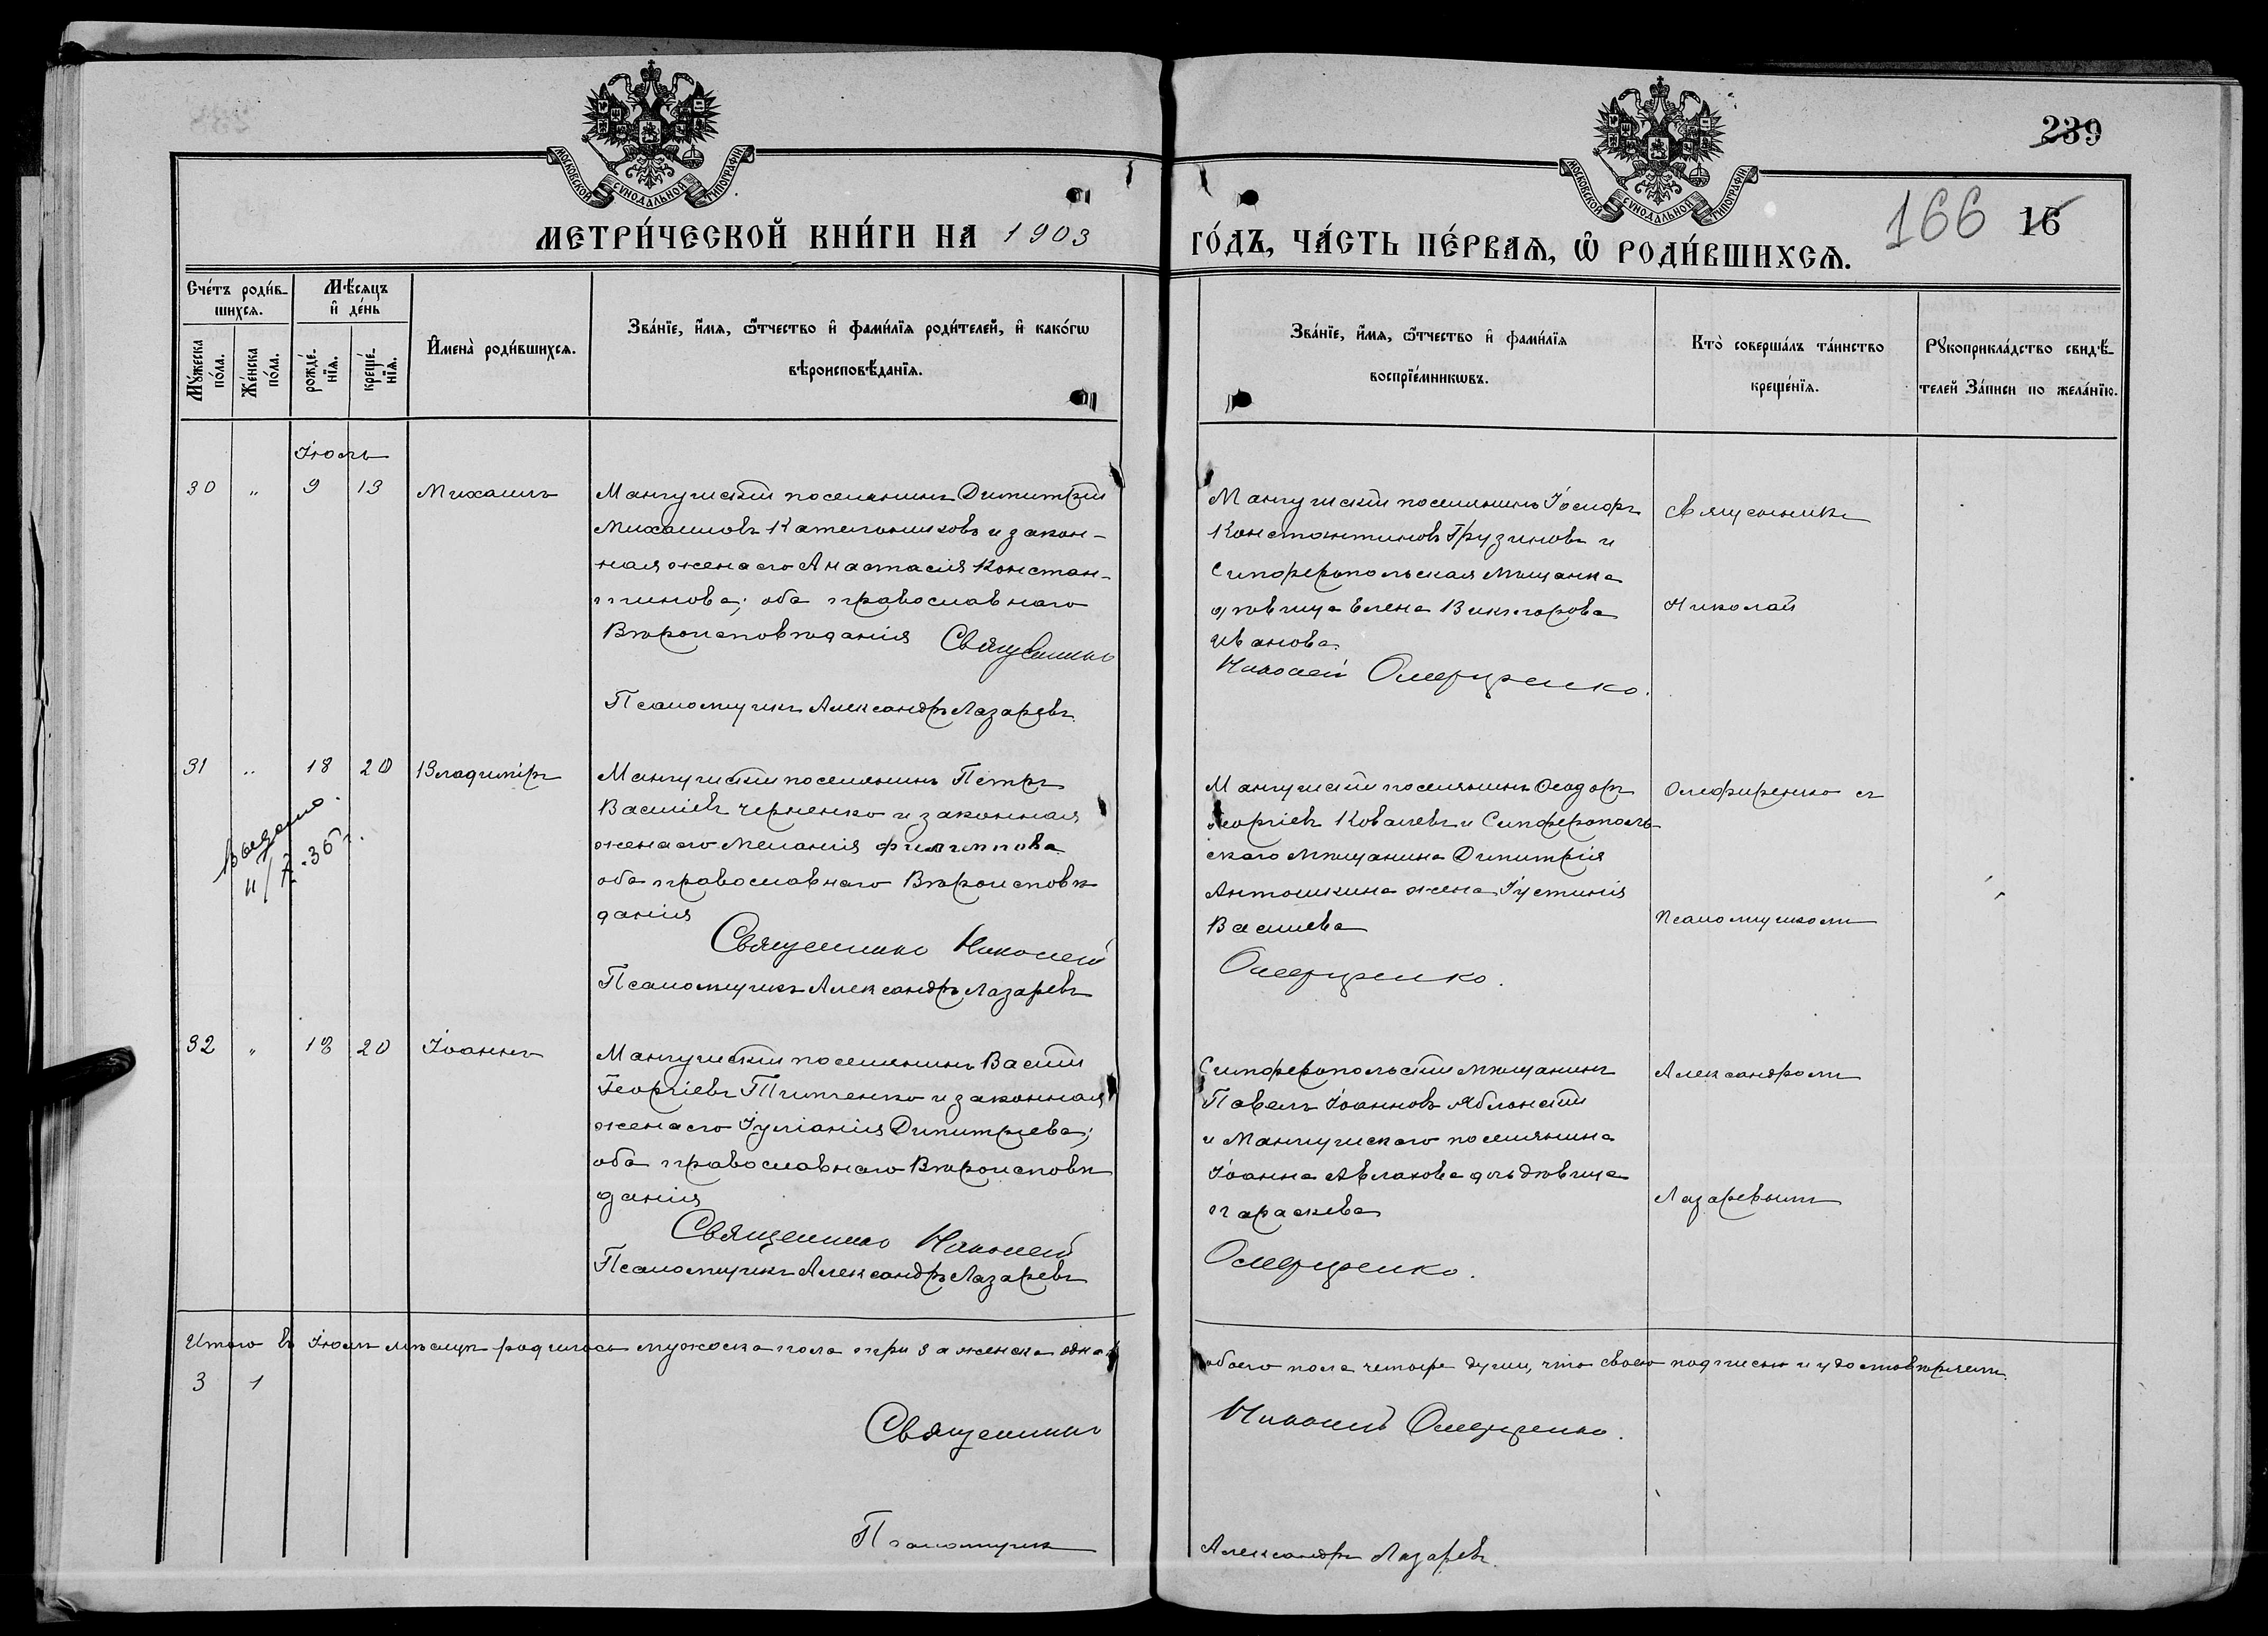 239
166 16
МОСКОВСКОЙ СѴНОДАЛЬНОЙ ТИПОГРАФІИ
МОСКОВСКОЙ СѴНОДАЛЬНОЙ ТИПОГРАФІИ
МЕТРИ́ЧЕСКОЙ КНИ́ГИ НА 1903
ГО́ДЪ, ЧА́СТЬ ПЕ́РВАѦ, Ѡ҆ РОДИ́ВШИХСѦ.
Сче́тъ роди́в-
шихсѧ.
Мꙋ́жеска по́ла.
Же́нска по́ла.
Мѣ́сѧцъ
и҆ де́нь
рожде́-
нїѧ.
креще́-
нїѧ.
И҆мена̀ роди́вшихсѧ.
Зва́нїе, и҆́мѧ, ѻ҆́тчество и҆ фами́лїѧ роди́телей, и҆ како́гѡ
вѣроисповѣ́данїѧ.
Зва́нїе, и҆́мѧ, ѻ҆́тчество и҆ фами́лїѧ
воспрїе́мникѡвъ.
Кто̀ соверша́лъ та́инство
креще́нїѧ.
Рꙋкоприкла́дство свидѣ́-
телей За́писи по жела́нїю.
Іюль
30 " 9 13 Михаилъ
Мангушскій поселянинъ Димитрій
Михаиловъ Кательниковъ и закон-
ная жена его Анастасія Констан-
тинова; оба православнаго
Вѣроисповѣданія Священникъ
Псаломщикъ Александръ Лазаревъ
Мангушскій поселянинъ Іосифъ
Константиновъ Грузиновъ и
Симферопольская мѣщанка
дѣвица Елена Викторова
Иванова
Николай Олефиренко.
Священникъ
Николай
31 " 18 20 Владиміръ
Выдано
11/7.36 г.
Мангушскій поселянинъ Петръ
Василіевъ Черненко и законная
жена его Меланія Филиппова
оба православнаго Вѣроисповѣ
данія
Священникъ Николай
Псаломщикъ Александръ Лазаревъ
Мангушскій поселянинъ Ѳеодоръ
Георгіевъ Ковалевъ и Симферополь-
скаго мѣщанина Димитрія
Антошкина жена Іустинія
Василева
Олефиренко.
Олефиренко съ
Псаломщикомъ
32 " 18 20 Іоаннъ
Мангушскій поселянинъ Василій
Георгіевъ Тимченко и законная
жена его Іуліанія Димитріева;
оба православнаго Вѣроисповѣ
данія
Священникъ Николай
Псаломщикъ Александръ Лазаревъ
Симферопольскій мѣщанинъ
Павелъ Іоанновъ Яблонскій
и Мангушскаго поселянина
Іоанна Авлахова дочь дѣвица
Параскева
Олефиренко.
Александромъ
Лазаревымъ
Итого въ Іюлѣ мѣсяцѣ родилось мужеска пола три 3 а женска одна 1
обоего пола четыре души, что своею подписью и удостовѣряемъ.
3 1
Священникъ
Николай Олефиренко.
Псаломщикъ
Александръ Лазаревъ.